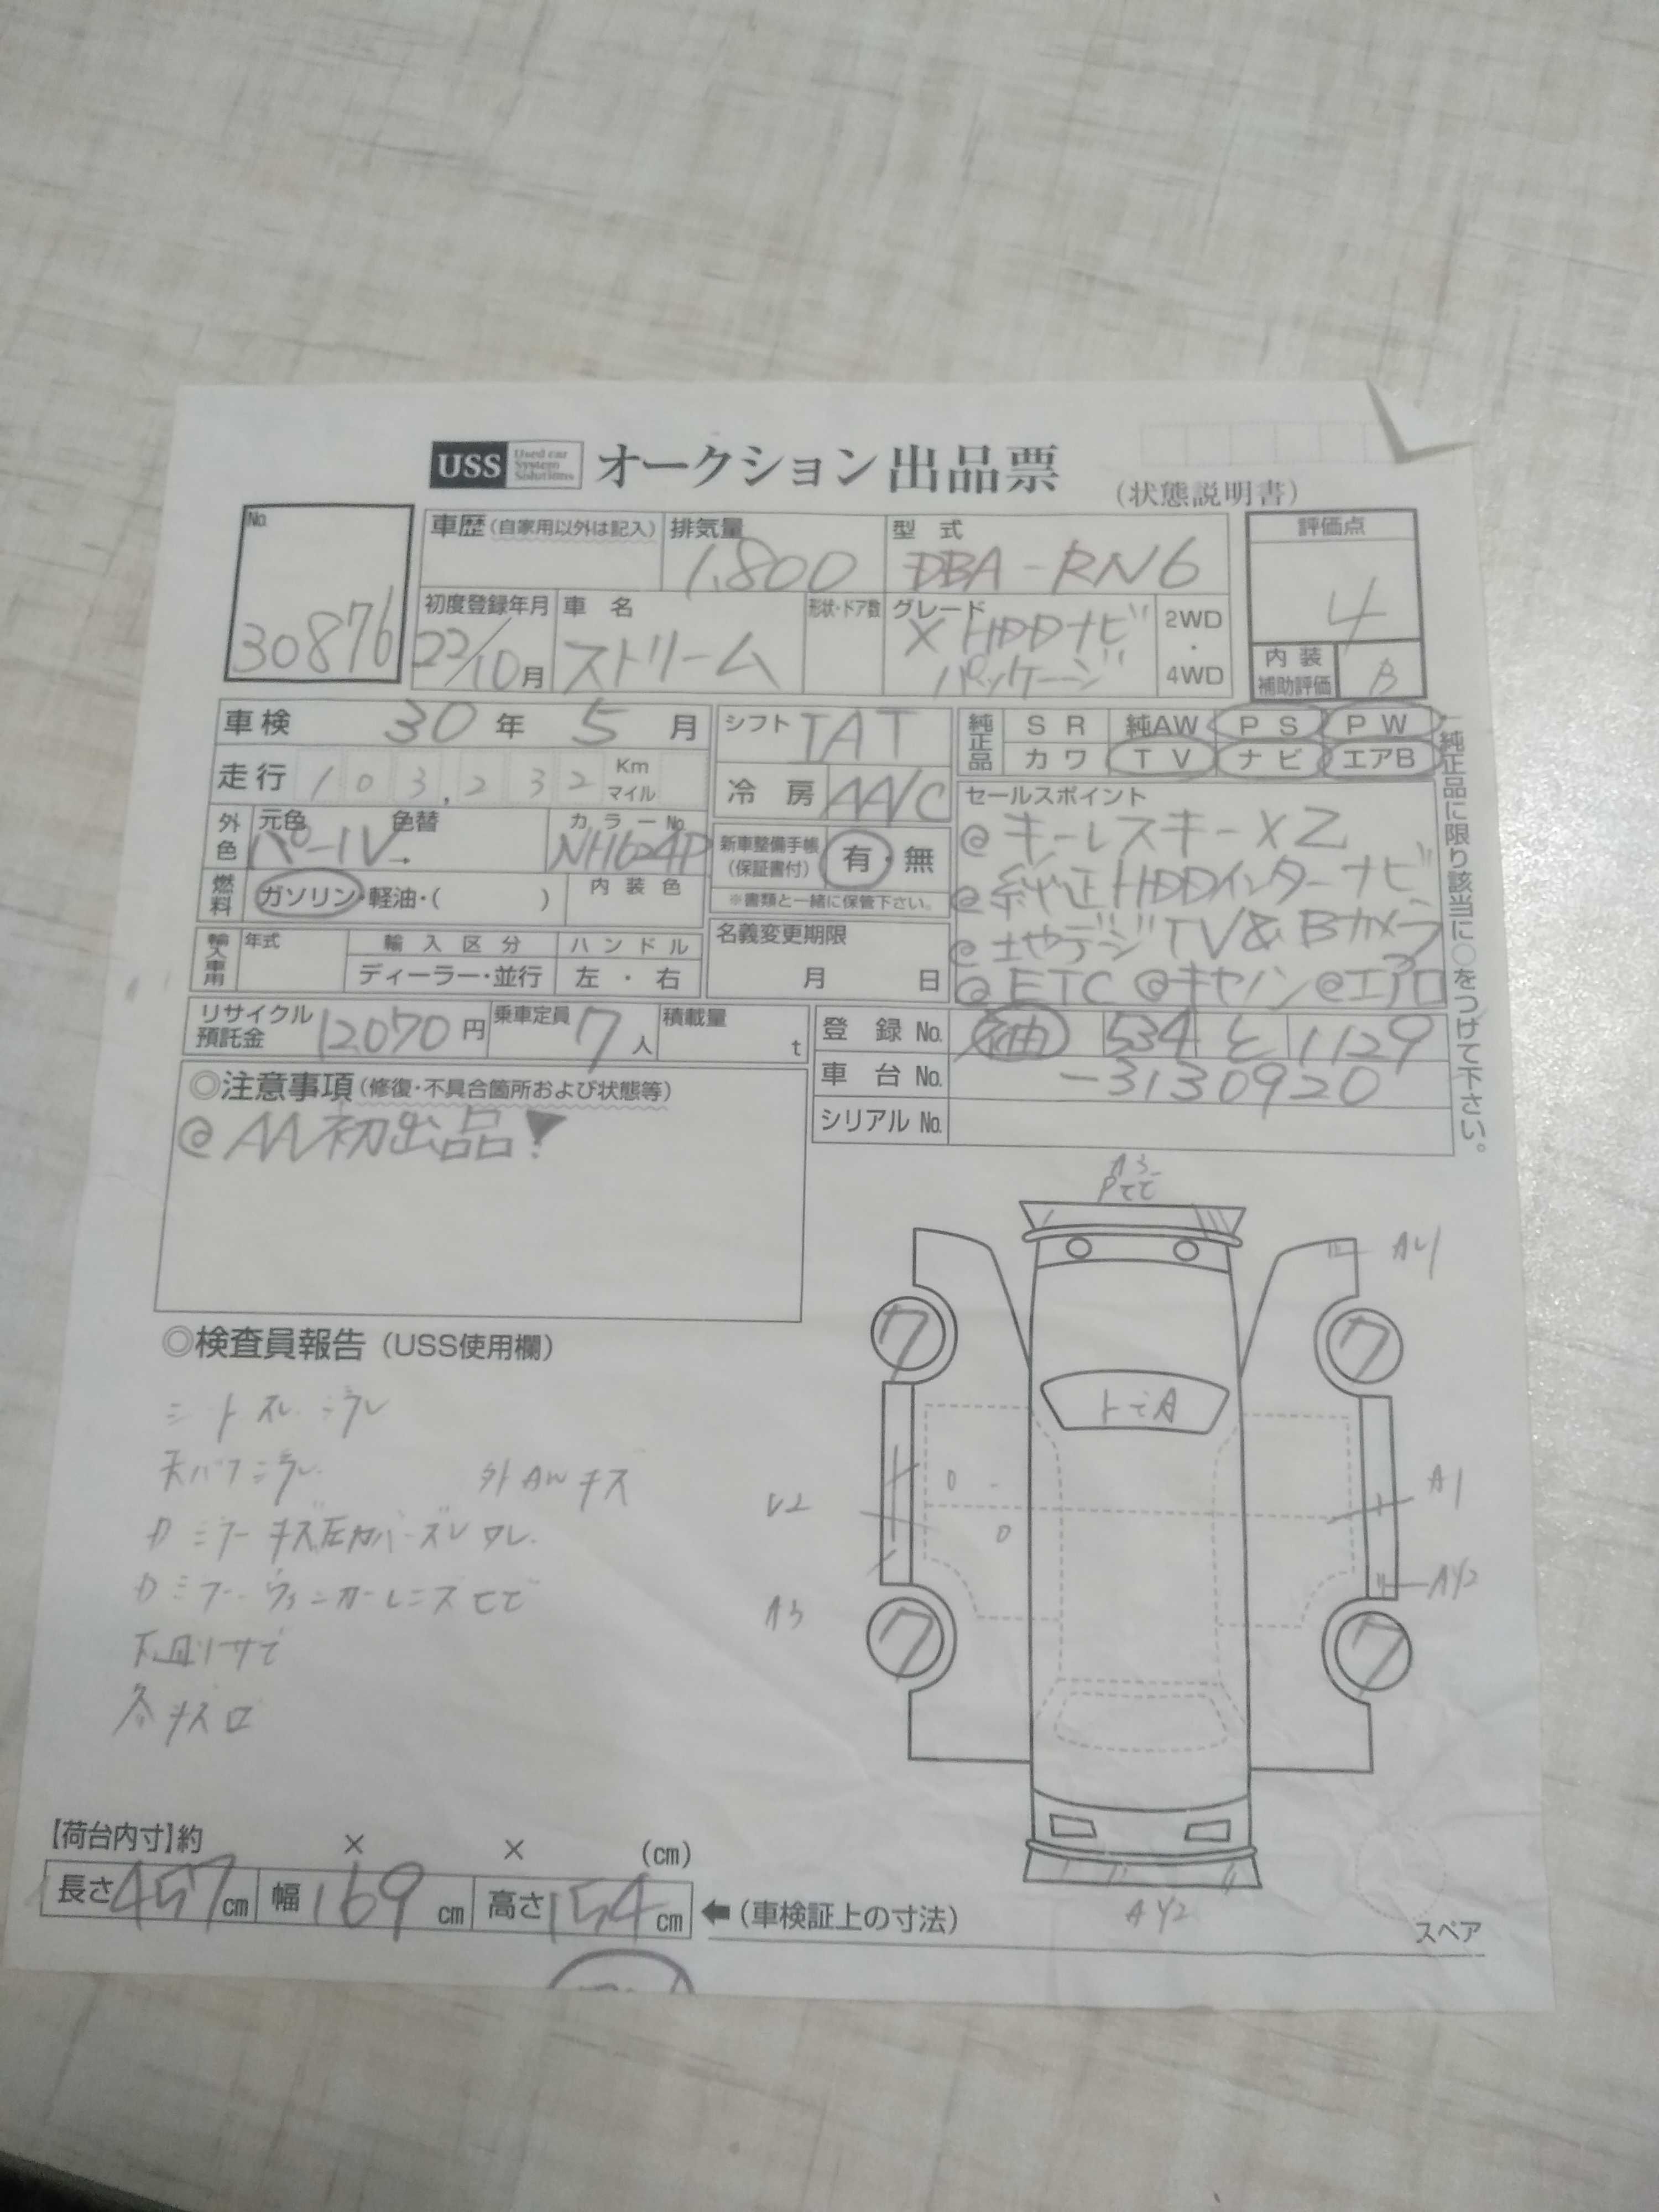 USS Used car System Solutions オークション出品票 (状態説明書)
No. 30876
車歴(自家用以外は記入) 排気量 1,800 型式 DBA-RN6
評価点 4
初度登録年月 22/10月 車名 ストリーム 形状・ドア数 グレード X HDDナビパッケージ 2WD・4WD
内装補助評価 B
車検 30年 5月 シフト IAT
純正品 SR 純AW PS PW
カワ TV ナビ エアB
純正品に限り該当に○をつけて下さい。
走行 103,232 Km マイル 冷房 AA/C
セールスポイント
@キーレスキーX2
@純正HDDインターナビ
@地デジTV&Bカメラ
@ETC @キャノン @エアロ
外色 元色 パール 色替 → カラーNo. NH624P
新車整備手帳(保証書付) 有・無
※書類と一緒に保管下さい。
燃料 ガソリン・軽油・( ) 内装色
名義変更期限 月 日
輸入車用 年式 輸入区分 ハンドル
ディーラー・並行 左・右
リサイクル預託金 12070円 乗車定員 7人 積載量 t
登録No. 534 と 1129
車台No. -3130920
シリアルNo.
◎注意事項(修復・不具合箇所および状態等)
@AA初出品!
A3
A1
◎検査員報告(USS使用欄)
シートスレ
外AWキズ
下回りサビ
7 7
トビA
A1
A3
7 7
AY2
【荷台内寸】約 × × (cm)
長さ457cm 幅169cm 高さ154cm ←(車検証上の寸法)
スペア